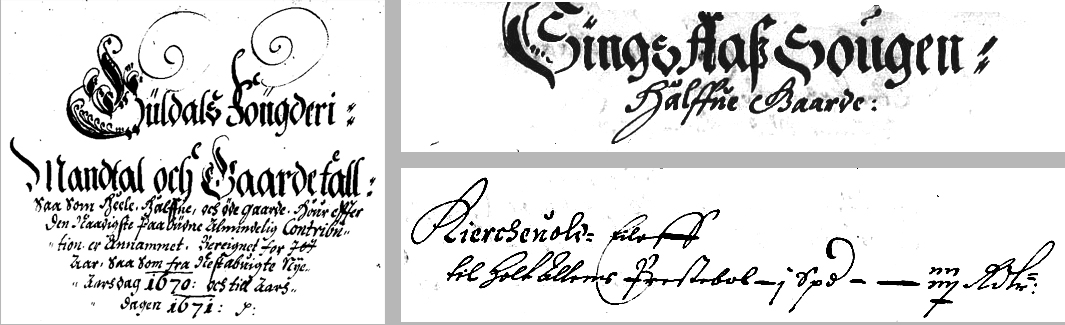 Güldals Fougderi:
Mandtal och Gaardetall:
Saa som Heele, Hälffue, och øde gaarde, Hour effter
den Naadigste Paabudne Almindelig Contribu-
tion er Annammet, Bereignet for
Aar, Saa som fra Nest abuigte Nye-
Aarsdag 1670: och til Aars-
dagen 1671:
Singsaaß Sougen:
Hälffue Gaarde:
Kierchevold:
til Prestebol - j Spd